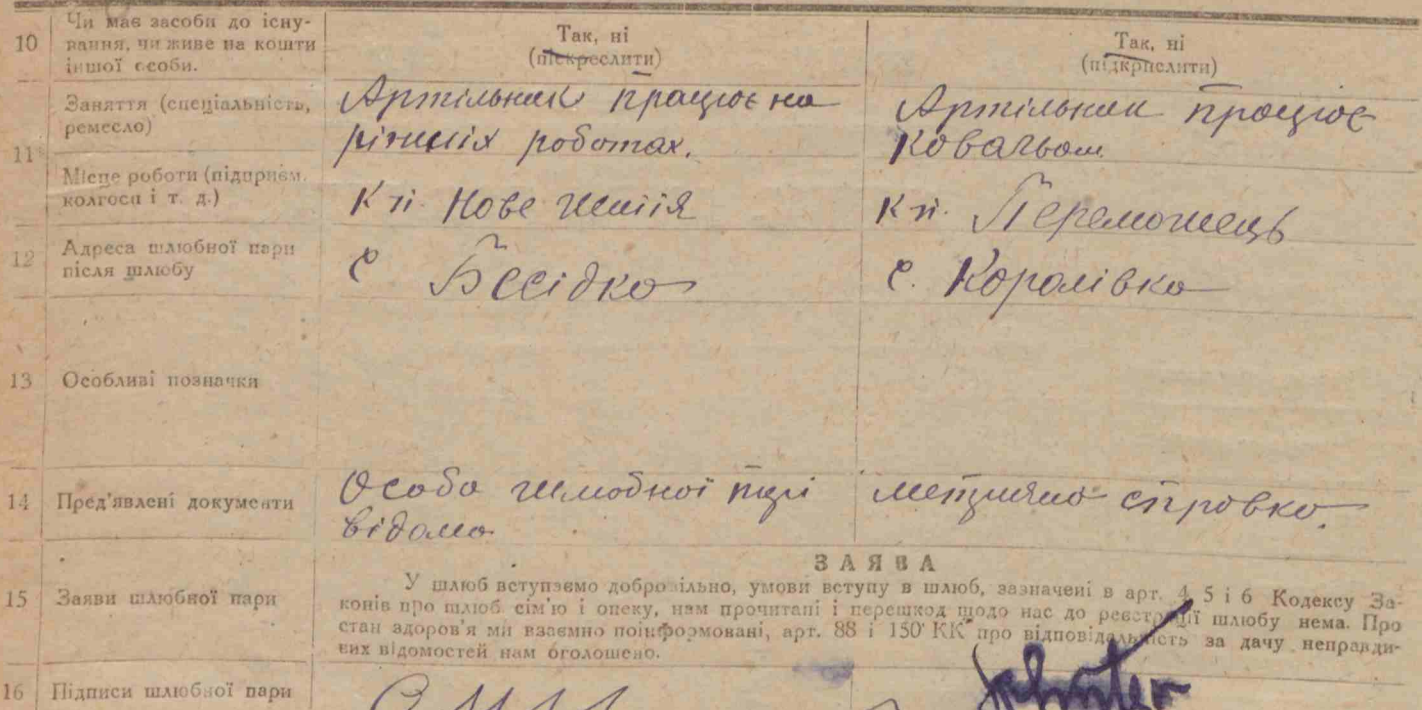 10 Чи має засоби до існу-
вання, чи живе на кошти
іншої особи.
Так, ні
(підкреслити)
Так, ні
(підкрислити)
11 Заняття (спеціальність,
ремесло)
Артільник працює на
різних роботах.
Артільник працює
ковальом
Місце роботи (підприєм.
колгосп і т. д.)
Кл. Нове життя
Кл. Переможець
12 Адреса шлюбної пари
після шлюбу
с Бесідка
с. Королівка
13 Особливі позначки
14 Пред'явлені документи
Особа шлюбної пари
відома
метрична справка.
ЗАЯВА
15 Заяви шлюбної пари
У шлюб вступаємо добровільно, умови вступу в шлюб, зазначені в арт. 4 5 і 6 Кодексу За-
конів про шлюб сім'ю і опеку, нам прочитані і перешкод щодо нас до реєстрації шлюбу нема. Про
стан здоров'я ми взаємно поінформовані, арт. 88 і 150 КК про відповідальність за дачу неправди-
вих відомостей нам оголошено.
16 Підписи шлюбної пари